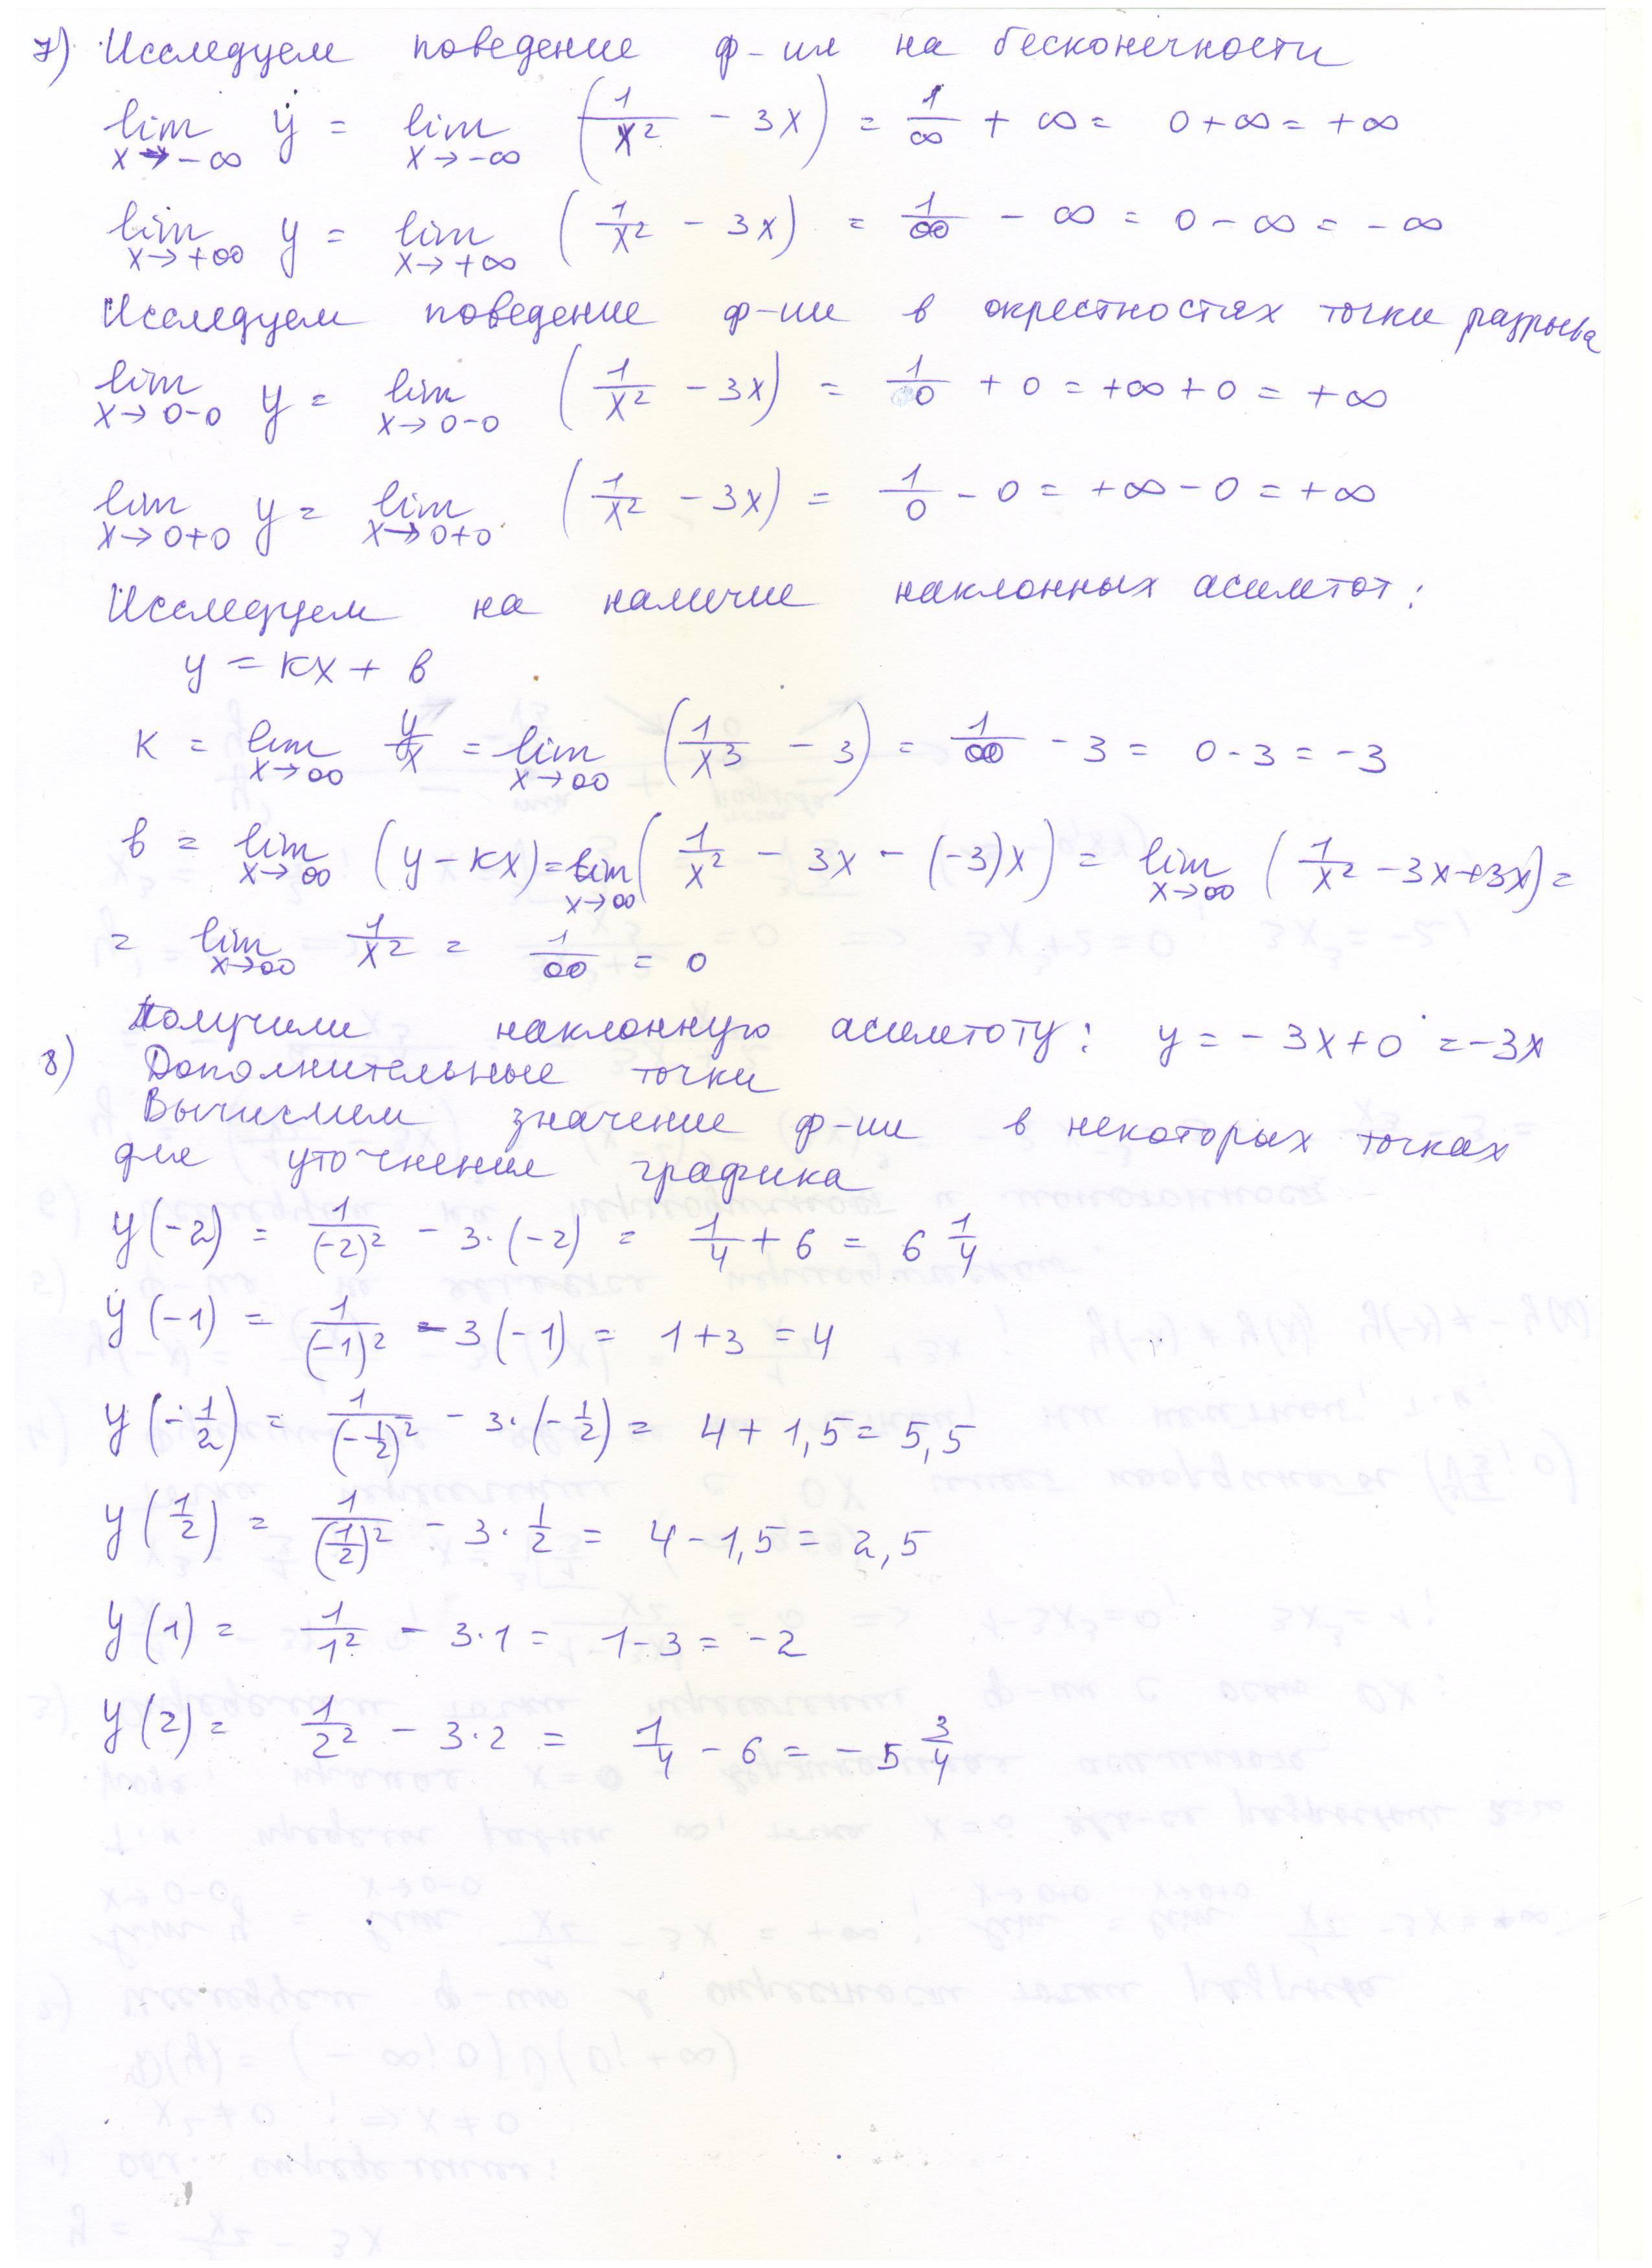 7) Исследуем поведение ф-ии на бесконечности
lim x→-∞ y = lim x→-∞ (1/x² - 3x) = 1/∞ + ∞ = 0+∞ = +∞
lim x→+∞ y = lim x→+∞ (1/x² - 3x) = 1/∞ - ∞ = 0-∞ = -∞
Исследуем поведение ф-ии в окрестностях точки разрыва
lim x→0-0 y = lim x→0-0 (1/x² - 3x) = 1/0 + 0 = +∞+0 = +∞
lim x→0+0 y = lim x→0+0 (1/x² - 3x) = 1/0 - 0 = +∞-0 = +∞
Исследуем на наличие наклонных асимтот:
y = kx + в
к = lim x→∞ y/x = lim x→∞ (1/x³ - 3) = 1/∞ - 3 = 0-3 = -3
в = lim x→∞ (y-kx) = lim x→∞ (1/x² - 3x - (-3)x) = lim x→∞ (1/x² - 3x+3x) =
= lim x→∞ 1/x² = 1/∞ = 0
Получили наклонную асимтоту: y = -3x+0 = -3x
8) Дополнительные точки
Вычислим значение ф-ии в некоторых точках
для уточнения графика
y(-2) = 1/(-2)² - 3·(-2) = 1/4 + 6 = 6 1/4
y(-1) = 1/(-1)² - 3(-1) = 1+3 = 4
y(-1/2) = 1/(-1/2)² - 3·(-1/2) = 4+1,5 = 5,5
y(1/2) = 1/(1/2)² - 3·1/2 = 4-1,5 = 2,5
y(1) = 1/1² - 3·1 = 1-3 = -2
y(2) = 1/2² - 3·2 = 1/4 - 6 = -5 3/4